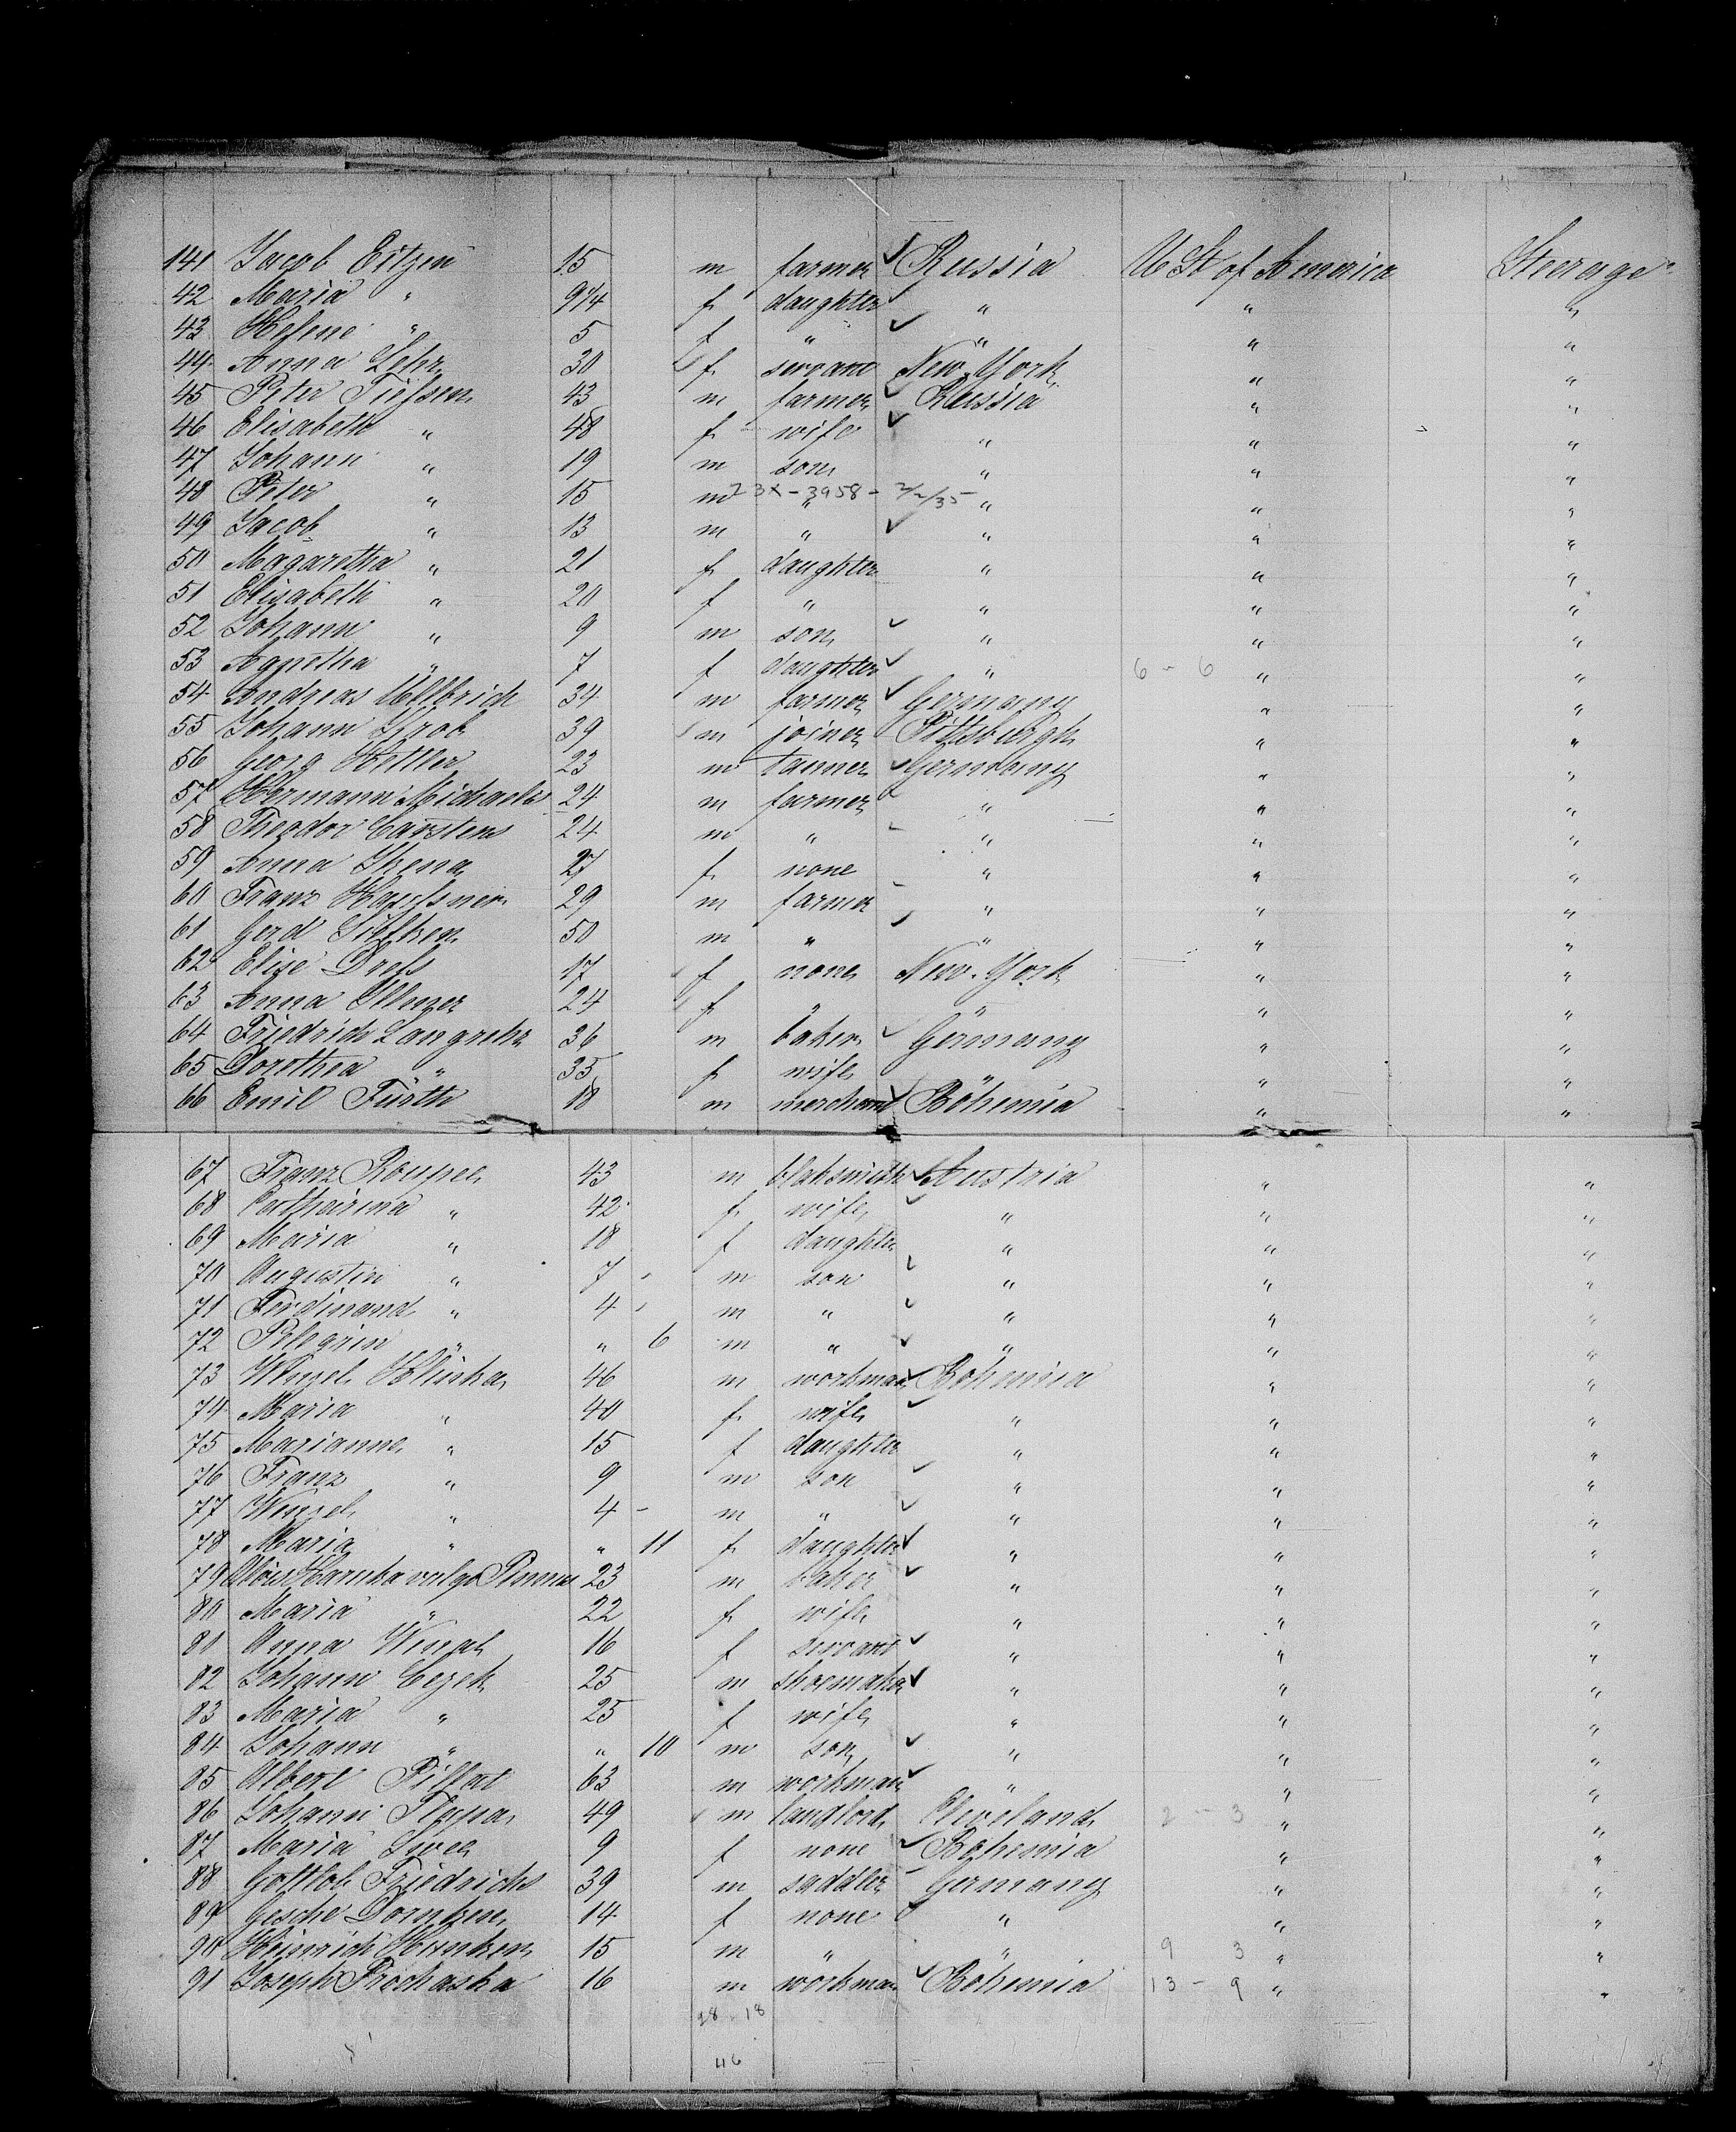 141 Jacob Eitzen 15 m farmer ✓ Russia U St of America Steerage
42 Maria " 9 1/4 f daughter ✓ " " "
43 Helene " 5 f " ✓ " " "
44 Anna Lehr 30 f servant New-York " "
45 Peter Tiessen 43 m farmer ✓ Russia " "
46 Elisabeth " 48 f wife ✓ " " "
47 Johann " 19 m son " " "
48 Peter " 15 m " " " "
23X-3958- 2/2/35
49 Jacob " 13 m " ✓ " " "
50 Magaretha " 21 f daughter " " "
51 Elisabeth " 20 f " " " "
52 Johann " 9 m son ✓ " " "
53 Agnetha " 7 f daughter ✓ " 6 - 6 " "
54 Andreas Ullbrich 34 m farmer ✓ Germany " "
55 Johann Grob 39 m joiner Pittsburgh " "
56 Georg Hettler 23 m tanner ✓ Germany " "
57 Hermann Michaelis 24 m farmer ✓ " " "
58 Theodor Carstens 24 m " " " "
59 Anna 27 f none " " "
60 Franz 29 m farmer " " "
61 Gerd 50 m " " " "
62 Elise 17 f none New-York " "
63 Anna 24 f " " " "
64 Friedrich Langrehr 36 m baker ✓ Germany " "
65 Dorothea " 35 f wife " "
66 Emil Fürth 18 m merchant ✓ Böhemia " "
67 Franz 43 m blaksmith ✓ Austria " "
68 Catharina " 42 f wife ✓ " " "
69 Maria " 18 f daughter " " "
70 Augustin " 7 m son ✓ " " "
71 Ferdinand " 4 m " ✓ " " "
72 Pelegrin " " 6 m " ✓ " " "
73 Wenzel Hluska 46 m workman ✓ Böhemia " "
74 Maria " 40 f wife ✓ " " "
75 Marianne " 15 f daughter " " "
76 Franz " 9 m son ✓ " " "
77 Wenzel " 4 - m " ✓ " " "
78 Maria " " 11 f daughter ✓ " " "
79 Alois vulgo 23 m baker ✓ " " "
80 Maria " 22 f wife " " "
81 Anna Wenzel 16 f servant ✓ " " "
82 Johann Cezek 25 m shoemaker ✓ " " "
83 Maria " 25 f wife " " "
84 Johann " " 10 m son ✓ " " "
85 Albert Pillat 63 m workman ✓ " " "
86 Johann 49 m landlord Cleveland 2 - 3 " "
87 Maria 9 f none ✓ Bohemia " "
88 Gottlob Friedrichs 39 m saddler Germany " "
89 Gesche Dorntzen 14 f none ✓ " " "
90 Heinrich 15 m " " 9 3 " "
91 Joseph Prochaska 16 m workman ✓ Böhemia 13 - 9 " "
28 - 18
46